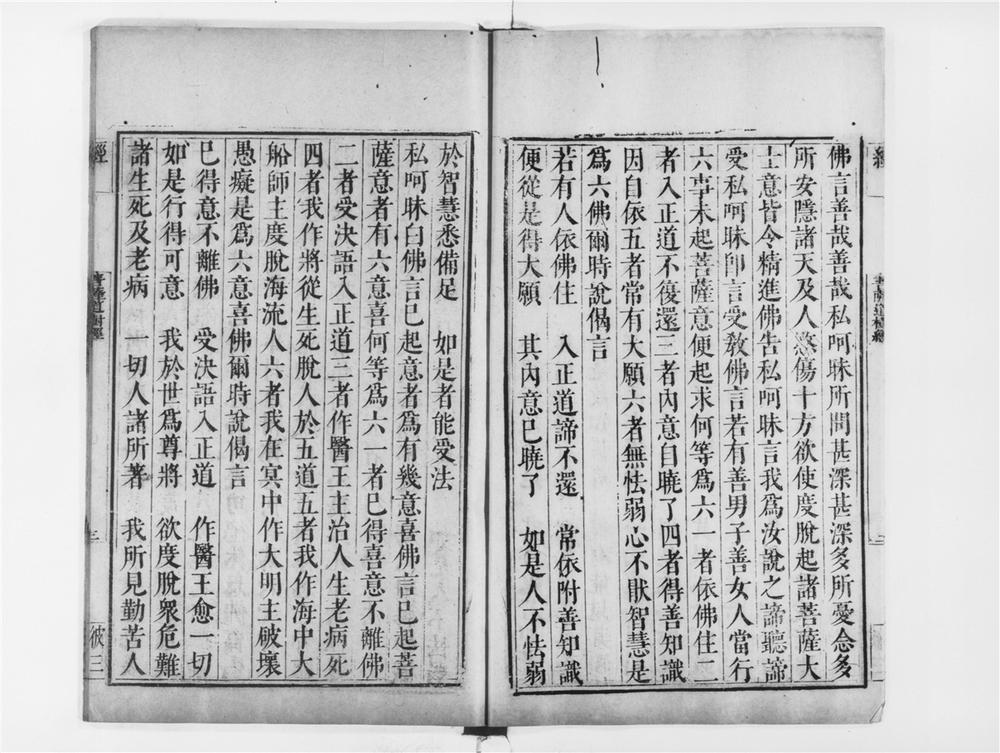 佛言善哉善哉私呵昧所問甚深甚深多所憂念多
所安隱諸天及人慜傷十方欲使度脫起諸菩薩大
士意皆令精進佛告私呵昧言我為汝說之諦聽諦
受私呵昧即言受教佛言若有善男子善女人當行
六事未起菩薩意便起求何等為六一者依佛住二
者入正道不復還三者內意自曉了四者得善知識
因自依五者常有大願六者無怯弱心不猒智慧是
為六佛爾時說偈言
若有人依佛住　入正道諦不還　常依附善知識
便從是得大願　其內意已曉了　如是人不怯弱
於智慧悉備足　如是者能受法
私呵昧白佛言已起意者為有幾意喜佛言已起菩
薩意者有六意喜何等為六一者已得喜意不離佛
二者受決語入正道三者作醫王主治人生老病死
四者我作將從生死脫人於五道五者我作海中大
船師主度脫海流人六者我在冥中作大明主破壞
愚癡是為六意喜佛爾時說偈言
已得意不離佛　受決語入正道　作醫王愈一切
如是行得可意　我於世為尊將　欲度脫眾危難
諸生死及老病　一切人諸所著　我所見勤苦人
經
菩薩道樹經
三
彼三